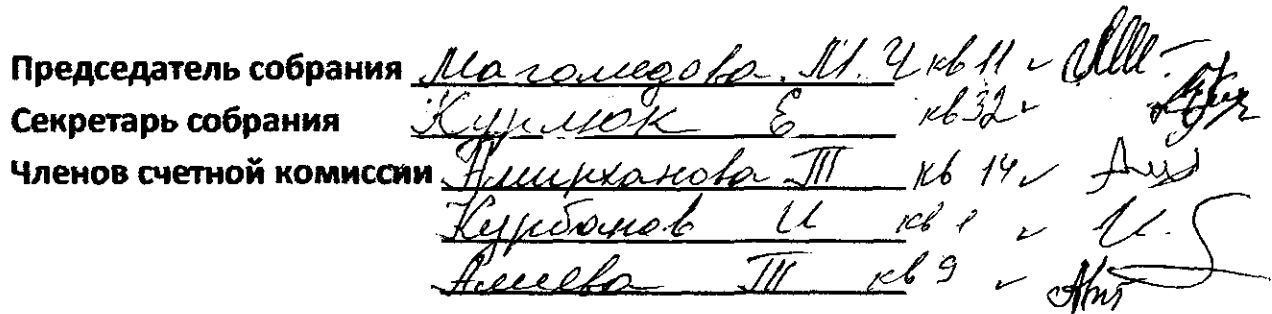 Председатель собрания Магомедова М. Ч кв 11
Секретарь собрания Курлюк Е кв 32
Членов счетной комиссии Амирханова Т кв 14
Курбанов И кв 1
Алиева Т кв 9